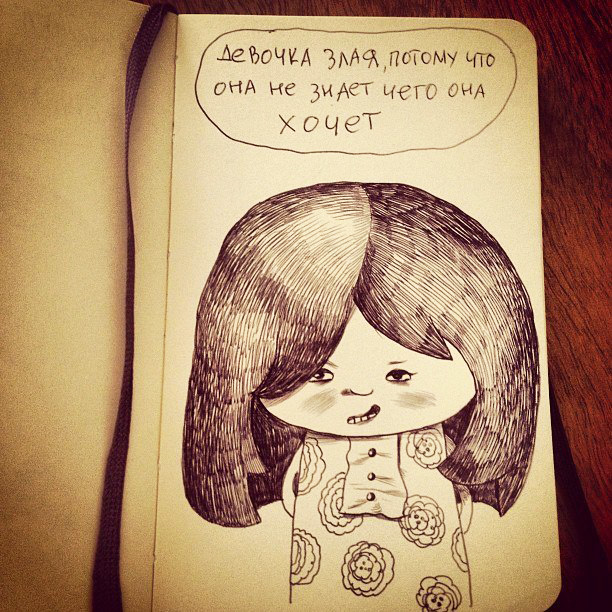 ДЕВОЧКА ЗЛАЯ, ПОТОМУ ЧТО
ОНА НЕ ЗНАЕТ ЧЕГО ОНА
ХОЧЕТ